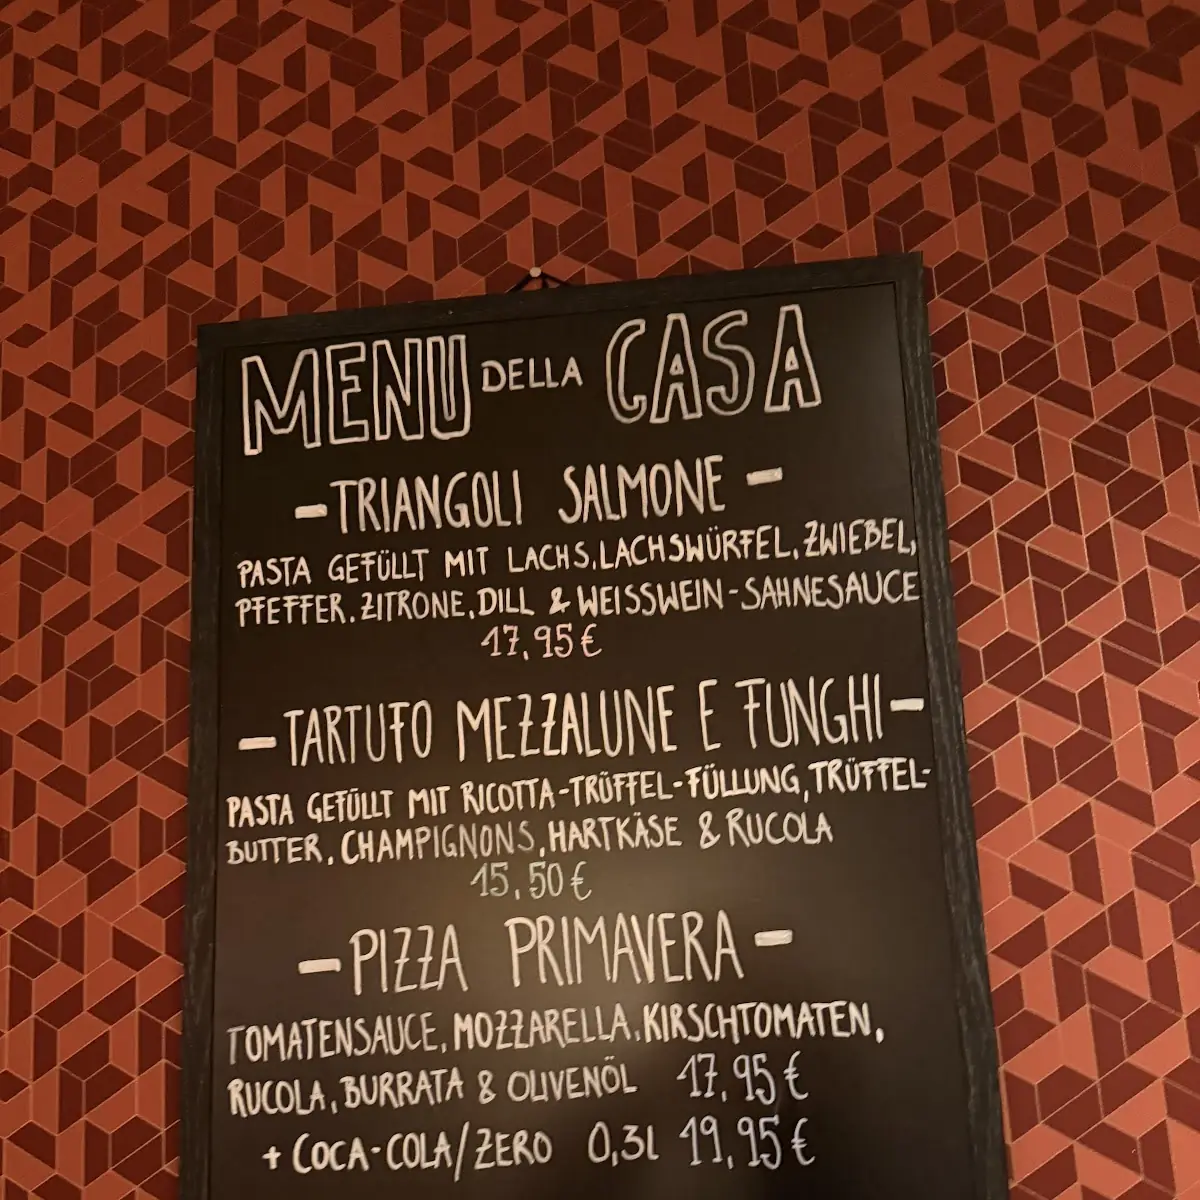 MENU DELLA CASA
- TRIANGOLI SALMONE -
PASTA GEFÜLLT MIT LACHS, LACHSWÜRFEL, ZWIEBEL,
PFEFFER, ZITRONE, DILL & WEISSWEIN-SAHNESAUCE
17,95 €
- TARTUFO MEZZALUNE E FUNGHI -
PASTA GEFÜLLT MIT RICOTTA-TRÜFFEL-FÜLLUNG, TRÜFFEL-
BUTTER, CHAMPIGNONS, HARTKÄSE & RUCOLA
15,50 €
- PIZZA PRIMAVERA -
TOMATENSAUCE, MOZZARELLA, KIRSCHTOMATEN,
RUCOLA, BURRATA & OLIVENÖL 17,95 €
+ COCA-COLA/ZERO 0,3L 19,95 €